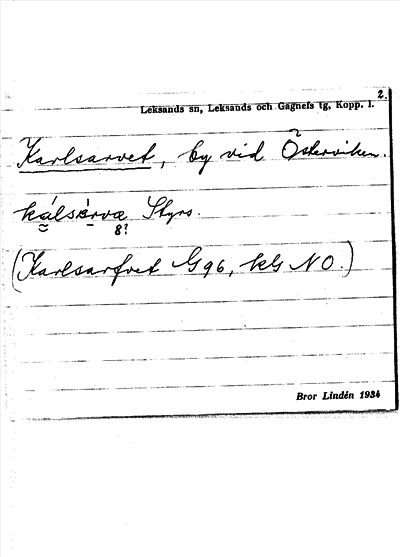 2.
Leksands sn, Leksands och Gagnefs tg, Kopp. l.
Karlsarvet, by vid Österviken.
kálsàrvæ Styrs.
8?
(Karlsarfvet G96, kG NO.)
Bror Lindén 1934